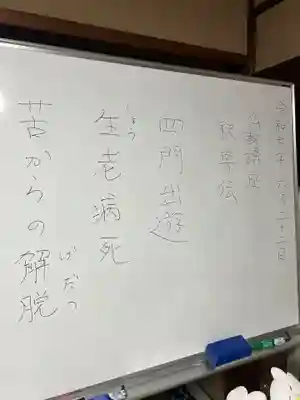 令和七年 六月二十二日
仏教講座
釈尊伝
四門出遊
生老病死
しょう
苦からの解脱
げだつ